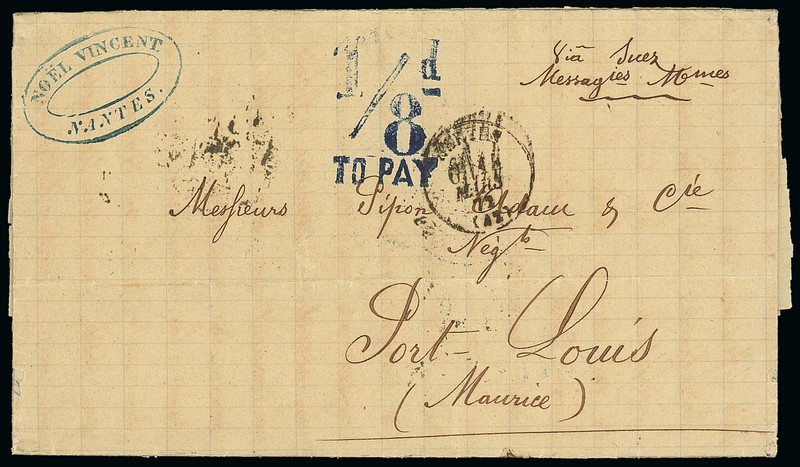 NOËL VINCENT
NANTES.
1/8d
TO PAY
Viâ Suez
Messagies Mmes
NANTES
MARS
(42)
Messieurs Pipon Adam & Cie
Négts
Port-Louis
(Maurice)